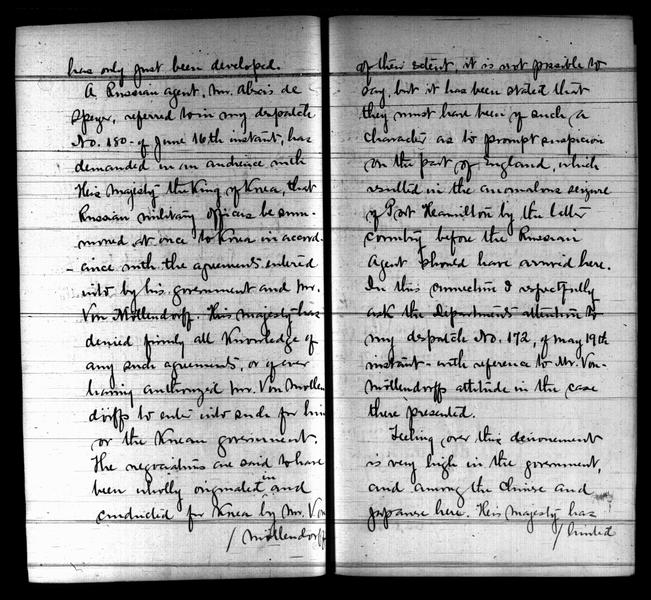 has only just been developed.
A Russian agent, Mr. Alexis de
Speyer, referred to in my despatch
No. 180 of June 16th instant, has
demanded in an audience with
His Majesty the King of Korea, that
Russian military officers be sum-
moned at once to Korea in accord-
ance with the agreements entered
into by his government and Mr.
Von Möllendorff. His Majesty has
denied firmly all knowledge of
any such agreements, or of ever
having authorized Mr. Von Möllen
dorff to enter into such for him
or the Korean government.
The negociations are said to have
been wholly originated in and
conducted for Korea by Mr. Von
/ Möllendorff
of their extent it is not possible to
say, but it has been stated that
they must have been of such a
character as to prompt suspicion
on the part of England, which
resulted in the anomalous seizure
of Port Hamilton by the latter
country before the Russian
Agent should have arrived here.
In this connection I respectfully
ask the Department's attention to
my despatch No. 172, of May 19th
instant - with reference to Mr. Von-
Möllendorff's attitude in the case
there presented.
Feeling over this denouement
is very high in the government,
and among the Chinese and
Japanese here. His Majesty has
/ hinted